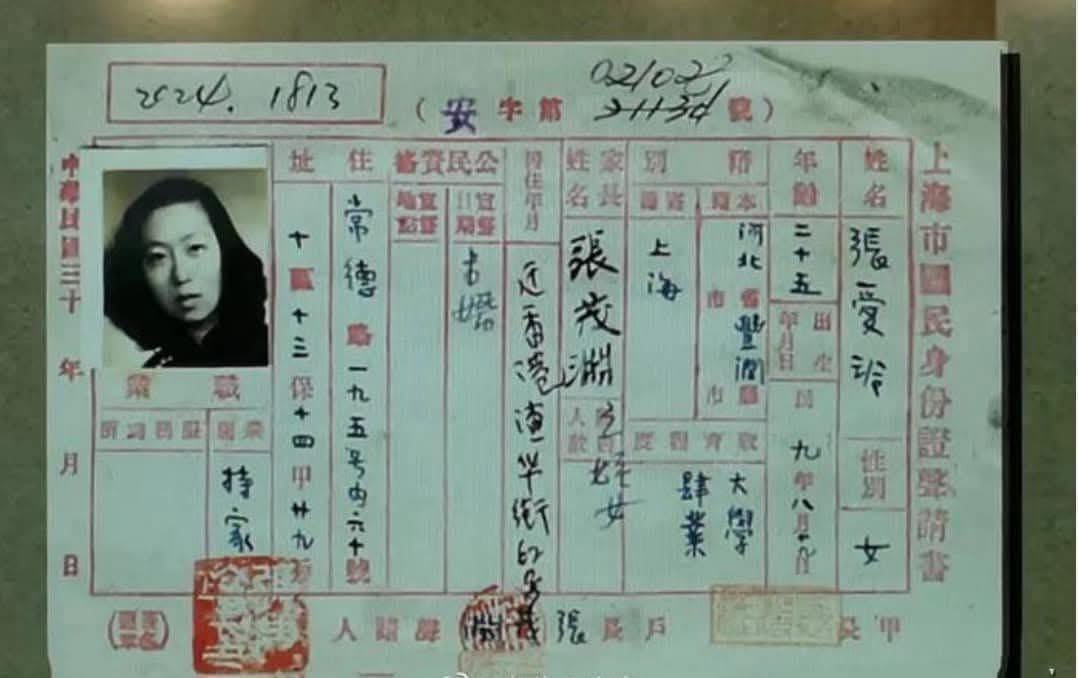 2024. 1813
(安字第 31134 號)
上海市國民身份證聲請書
姓名
張愛玲
性別
女
年齡
二十五
出生年月日
民九年八月
籍別
本籍
河北省豐潤縣
市
市
寄籍
上海
教育程度
大學肄業
家長姓名
張茂淵
姪女
遷住年月
公民資格
宣誓日期
宣誓地點
住址
常德路一九五号内六十號
十區十三保十四甲廿九
職業
業別
持家
服務處所
中華民國三十 年 月 日
甲長
戶長
張茂淵
聲請人